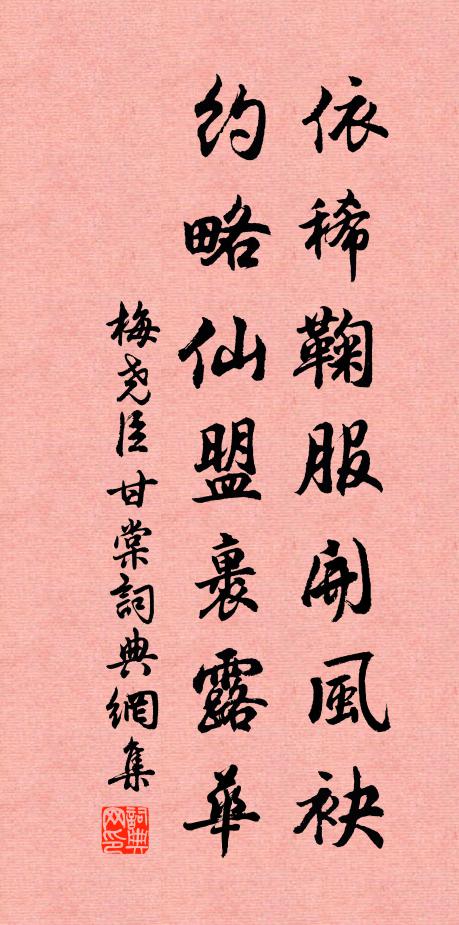 依稀鞠服開風袂
約略仙盟裹露華
梅堯臣甘棠詞典網集
詞典網印